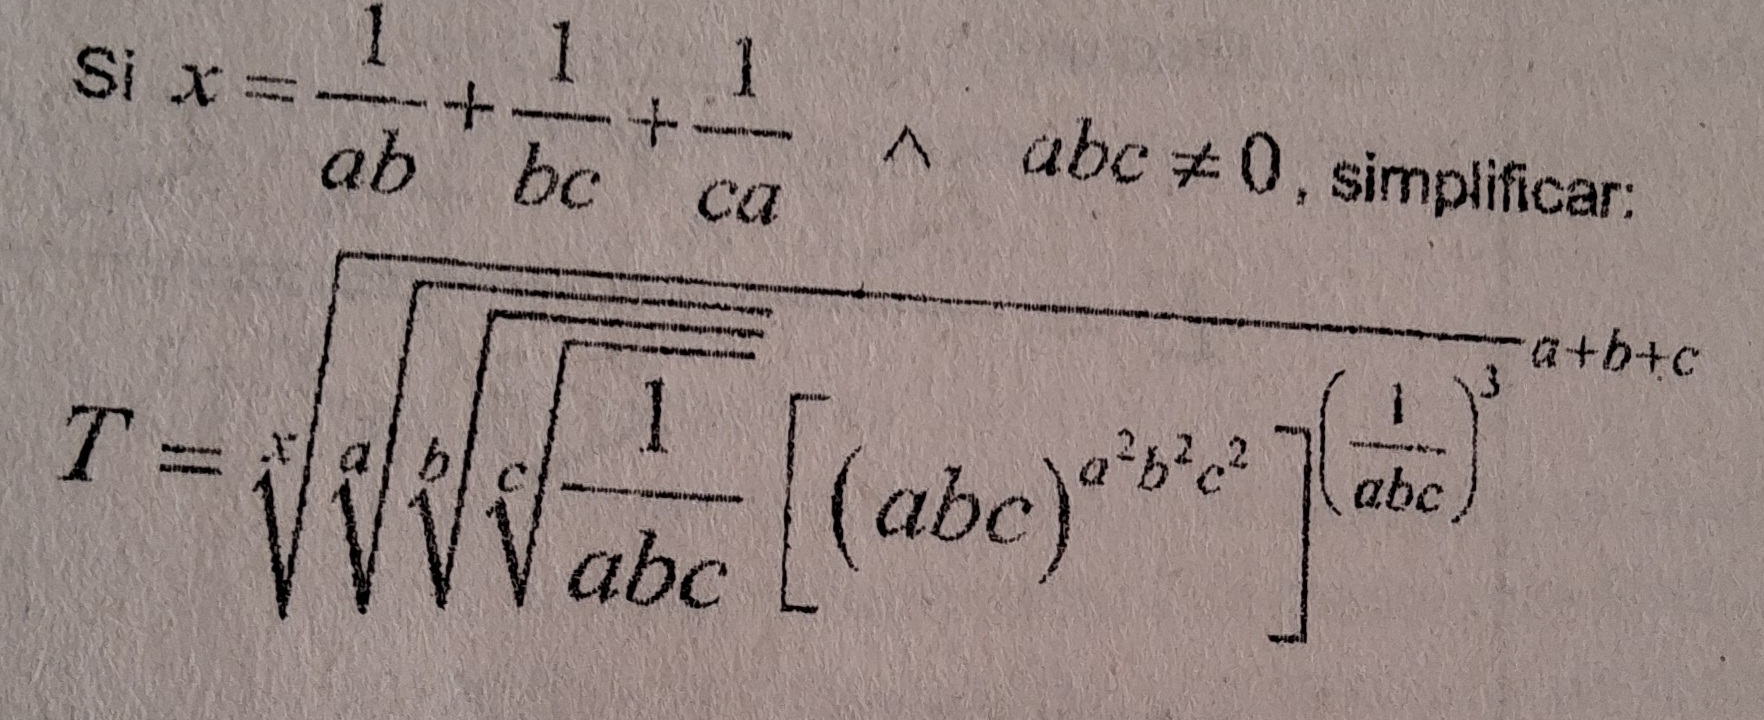 Si $x = \frac{1}{ab} + \frac{1}{bc} + \frac{1}{ca}$ ∧ $abc \neq 0$, simplificar:
$T = \sqrt[x]{\sqrt[a]{\sqrt[b]{\sqrt[c]{\frac{1}{abc}}}} \left[ (abc)^{a^2b^2c^2} \right]^{\left(\frac{1}{abc}\right)^3}}^{a+b+c}$